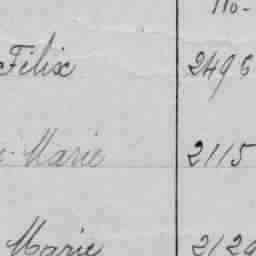 110-
Félix 2496
Marie 2115
Marie 212